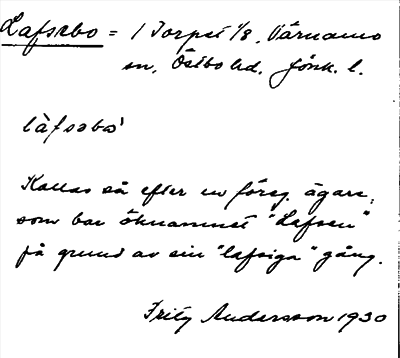 Lafsebo = 1 Torpet 1/8, Värnamo
sn, Östbo hd. Jönk. l.
làfsebo'
Kallas så efter en föreg. ägare,
som bar öknamnet "Lafsen"
på grund av sin "lafsiga" gång.
Fritz Andersson 1930